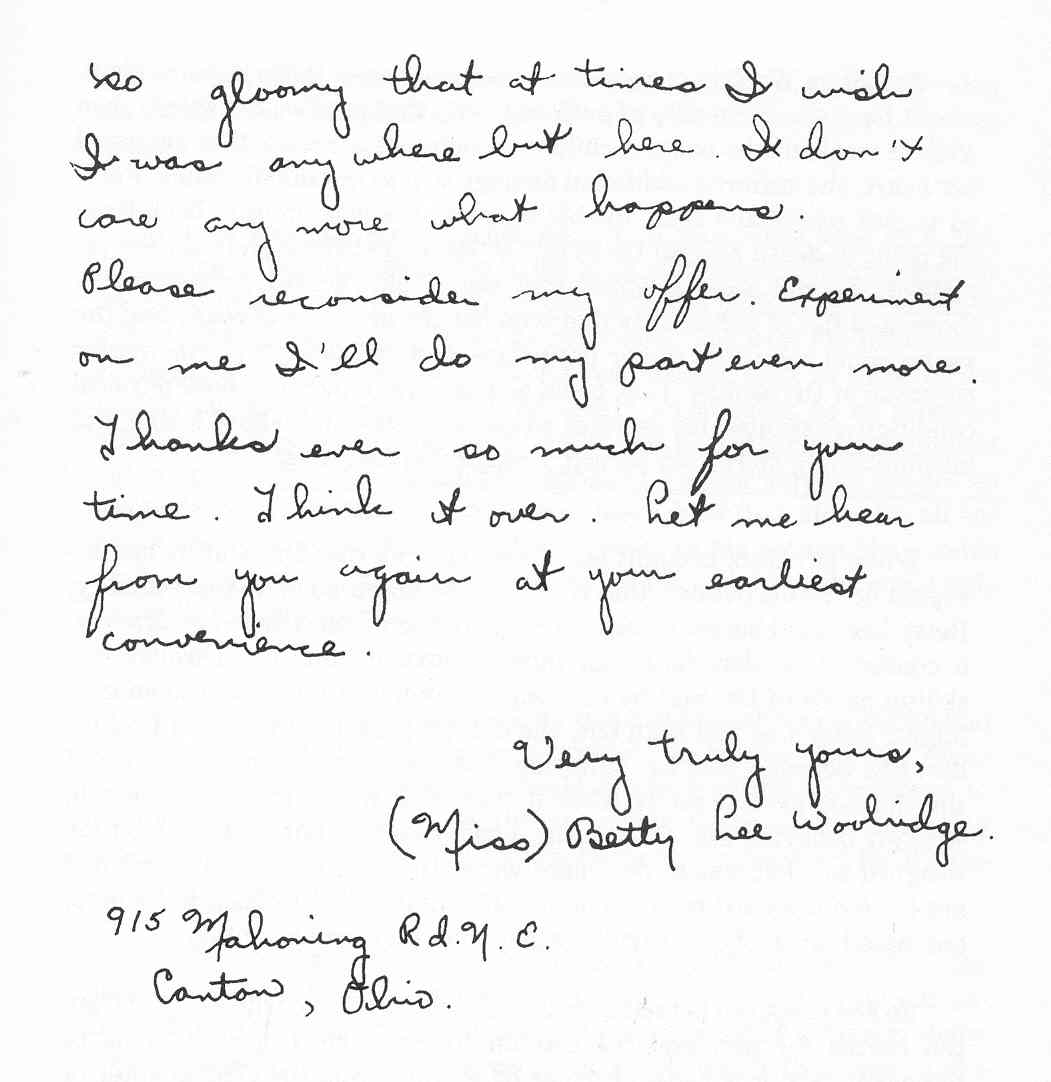 so gloomy that at times I wish
I was any where but here. I don't
care any more what happens.
Please reconsider my offer. Experiment
on me I'll do my part even more.
Thanks ever so much for your
time. Think it over. Let me hear
from you again at your earliest
convenience.
Very truly yours,
(Miss) Betty Lee Woolridge.
915 Mahoning Rd. N. E.
Canton, Ohio.